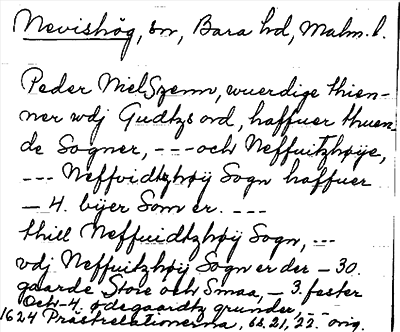 Nevishög, sn, Bara hd, Malm. l.
Peder NielSzenn, wuerdige thien-
ner wdj Gudtzs ord, haffuer thuen-
de Sogner, --- och Neffuitzhøye,
--- Neffvidtzhøÿ Sogn haffuer
- 4. bÿer Som er. ---
thill Neffuidtzhøÿ Sogn, ---
vdj Neffuitzhøÿ Sogn er der - 30.
gaarde Store och Smaa, - 3. fester
Och - 4. ødegaardtz grunder, --
1624 Prästrelationerna, bl. 21, 22 orig.